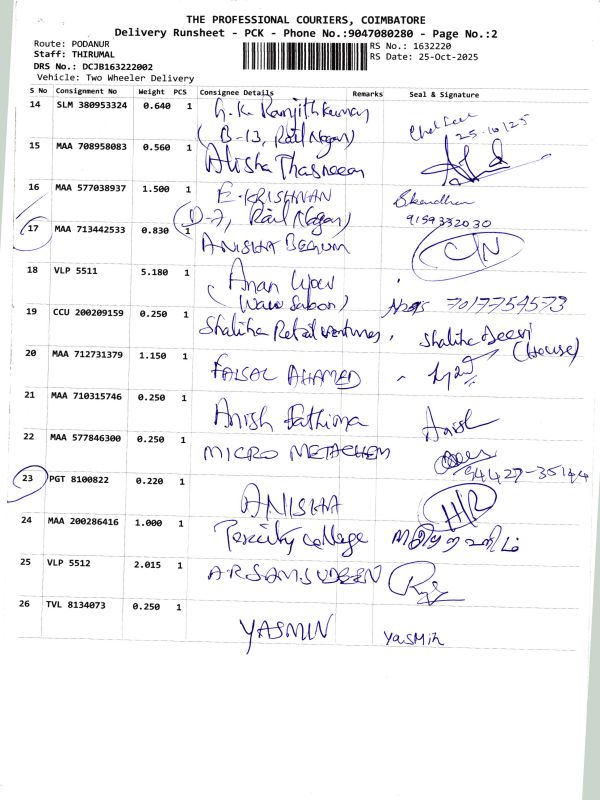 THE PROFESSIONAL COURIERS, COIMBATORE
Delivery Runsheet - PCK - Phone No.:9047080280 - Page No.:2
Route: PODANUR
RS No.: 1632220
Staff: THIRUMAL
RS Date: 25-Oct-2025
DRS No.: DCJB163222002
Vehicle: Two Wheeler Delivery
S No Consignment No Weight PCS Consignee Details Remarks Seal & Signature
14 SLM 380953324 0.640 1 G.K. Ranjithkumar
(B-13, Rail Nagar) 25.10/25
15 MAA 708958083 0.560 1 Alisha Thasneem
16 MAA 577038937 1.500 1 E.KRISHNAN
(D-7, Rail Nagar) 9159332030
17 MAA 713442533 0.830 1 ANISHA BEGUM
18 VLP 5511 5.180 1
7017754573
19 CCU 200209159 0.250 1 Shaliha Retail ventures, Shaliha
(House)
20 MAA 712731379 1.150 1 FAISAL AHAMED
21 MAA 710315746 0.250 1 Anish Fathima Anish
22 MAA 577846300 0.250 1 MICRO METACHEM
94427-35144
23 PGT 8100822 0.220 1 ANISHA H/R
24 MAA 200286416 1.000 1 college
25 VLP 5512 2.015 1 A.R.SAMSUDEEN
26 TVL 8134073 0.250 1 YASMIN YasMin